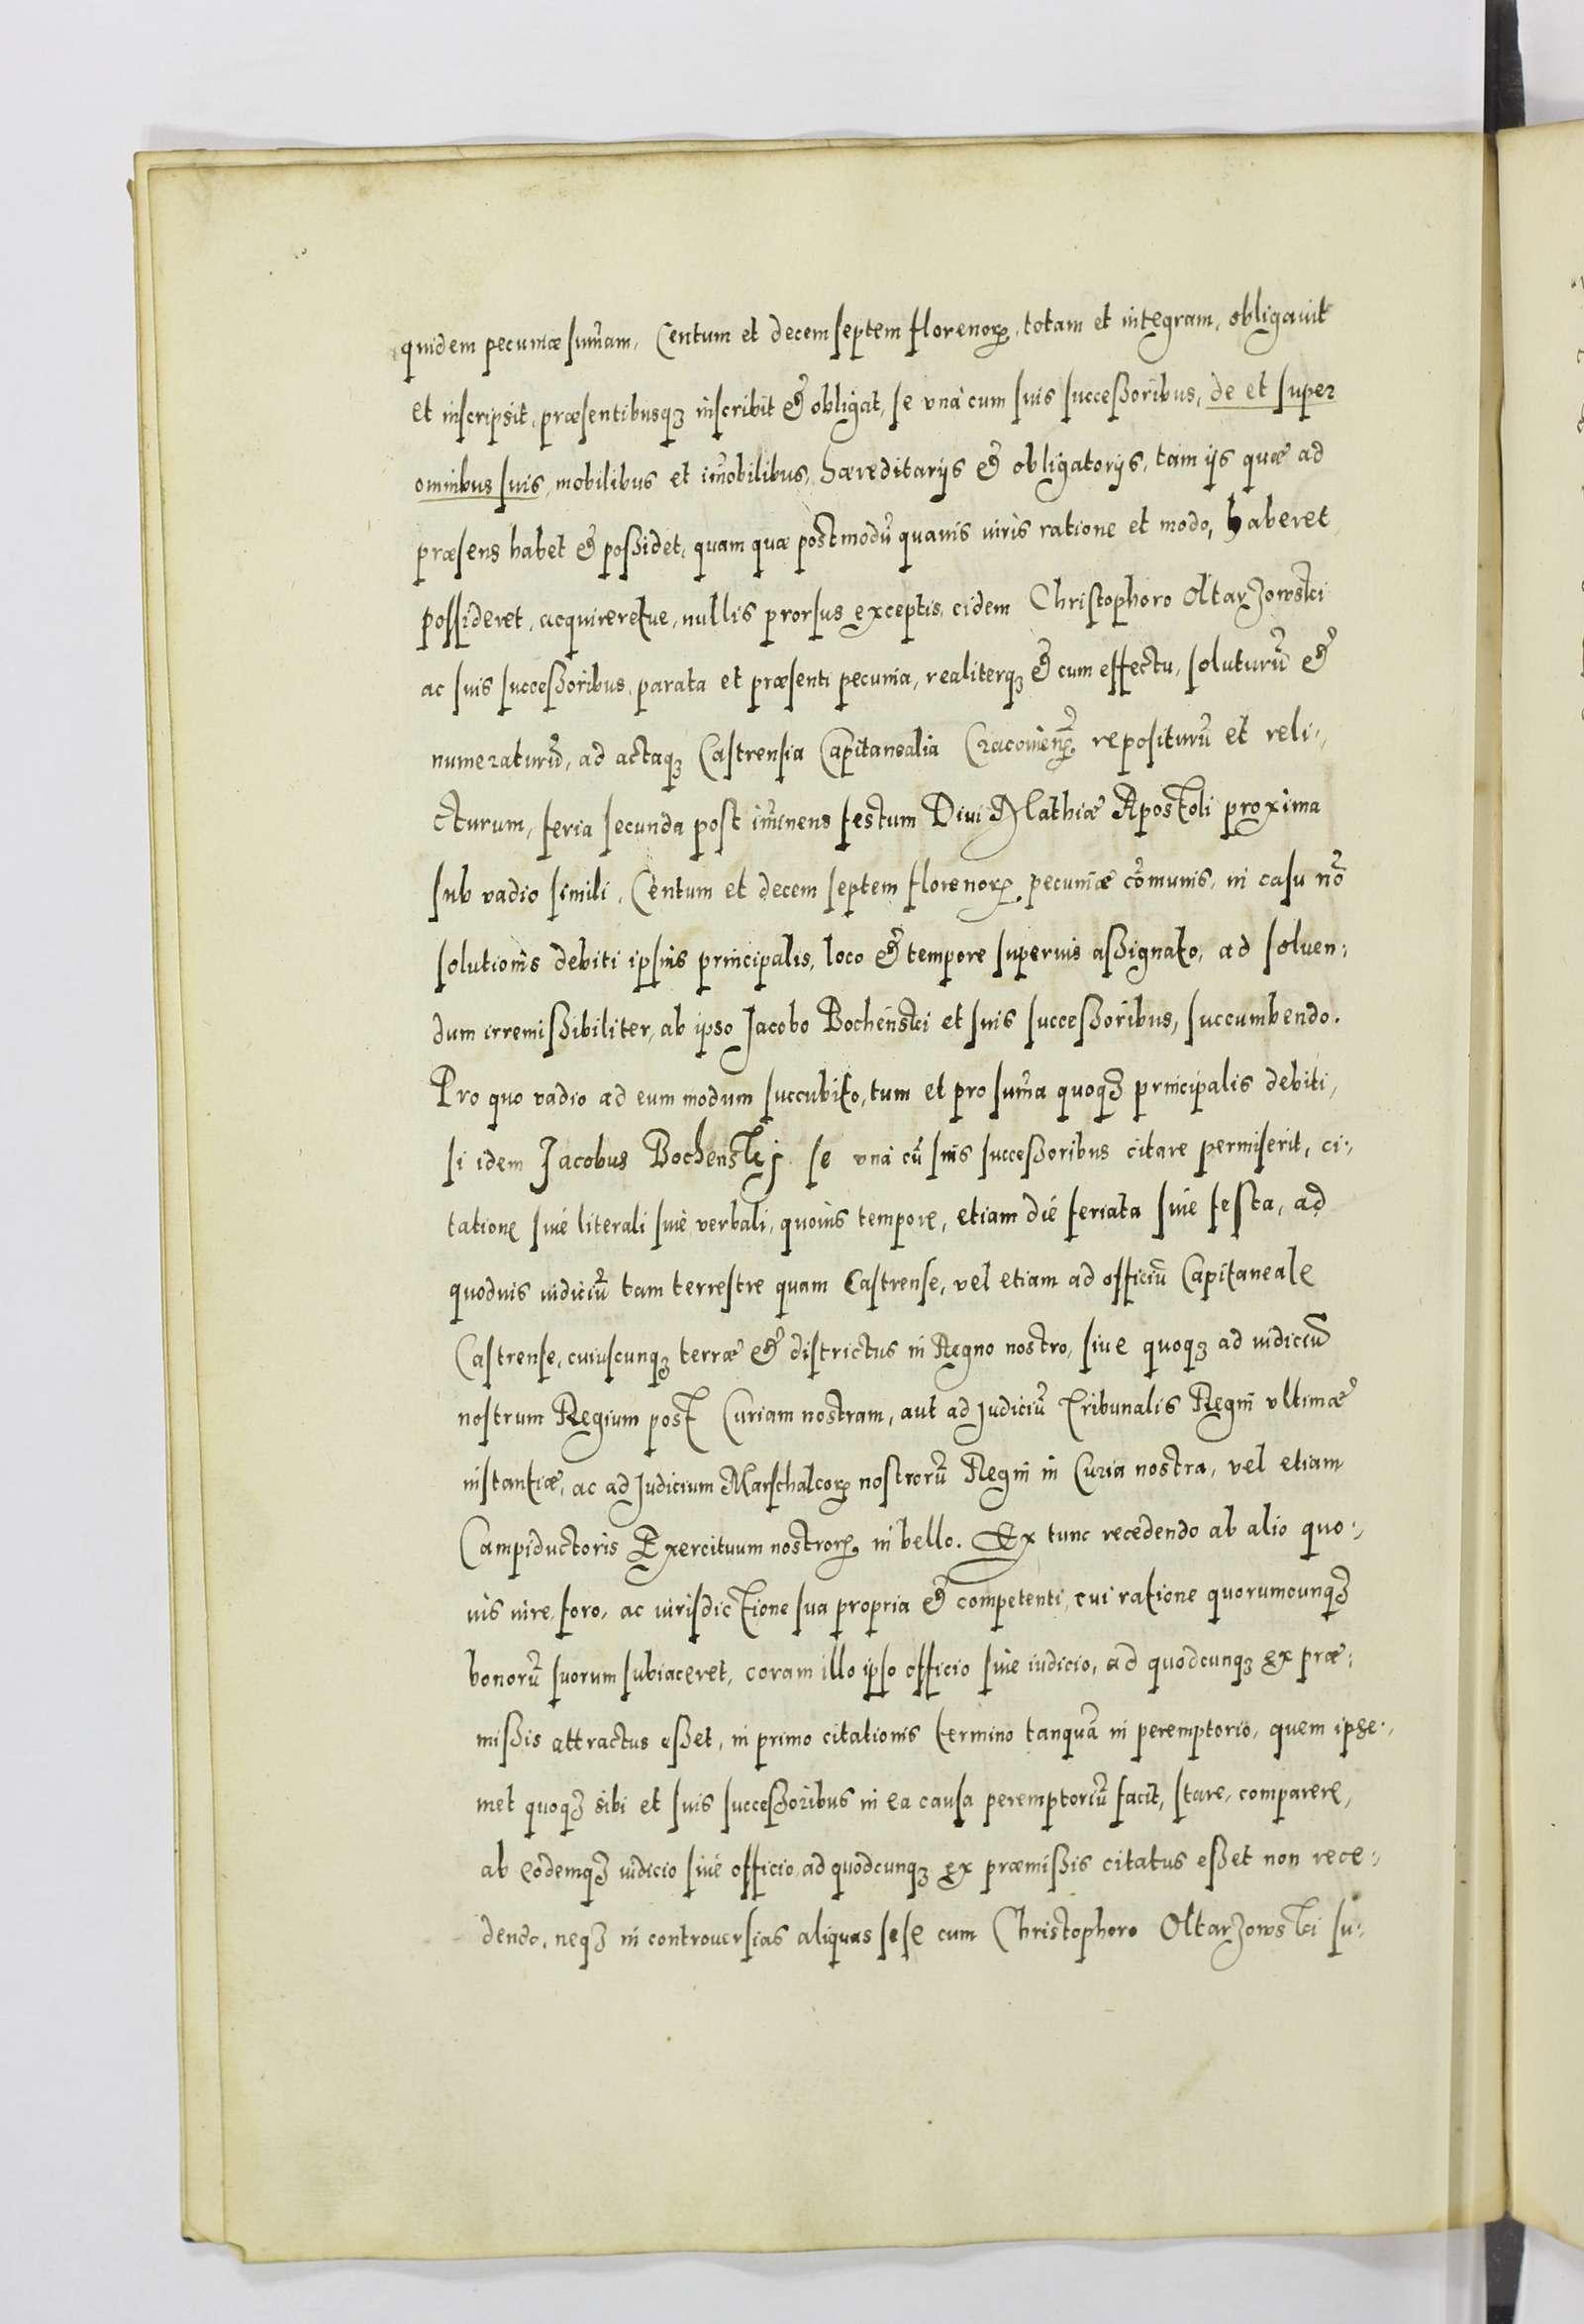 quidem pecuniæ sum̃am, Centum et decem septem florenorꝝ, totam et integram, obligauit
et inscripsit, præsentibusqꝫ inscribit & obligat, se unà cum suis successoribus, de et super
omnibus suis, mobilibus et im̃obilibus, hæreditarijs & obligatorijs, tam ijs quæ ad
præsens habet & possidet, quam quæ postmodũ quauis iuris ratione et modo, haberet
possideret, acquireretue, nullis prorsus exceptis, eidem Christophoro Oltarzowski
ac suis successoribus, parata et præsenti pecunia, realiterqꝫ & cum effectu, soluturũ &
numeraturũ, ad actaqꝫ Castrensia Capitanealia Cracouieñ. repositurũ et reli-
cturum, feria secunda post im̃inens festum Diui Mathiæ Apostoli proxima
sub vadio simili, Centum et decem septem florenorꝝ, pecuniæ cõmunis, in casu nõ
solutionis debiti ipsius principalis, loco & tempore superius assignato, ad soluen:
dum irremissibiliter, ab ipso Jacobo Bochenski et suis successoribus, succumbendo.
Pro quo vadio ad eum modum succubito, tum et pro sum̃a quoqꝫ principalis debiti,
si idem Jacobus Bochenskj se vnà cũ suis successoribus citare permiserit, ci:
tatione siue literali siue verbali, quouis tempore, etiam die feriata siue festa, ad
quoduis iudiciũ tam terrestre quam Castrense, vel etiam ad officiũ Capitaneale
Castrense, cuiuscunqꝫ terræ & districtus in Regno nostro, siue quoqꝫ ad iudiciũ
nostrum Regium post Curiam nostram, aut ad Judiciũ Tribunalis Regni vltimæ
instantiæ, ac ad Judicium Marschalcorꝝ nostrorũ Regni in Curia nostra, vel etiam
Campiductoris Exercituum nostrorꝝ in bello. Ex tunc recedendo ab alio quo:
uis iure, foro, ac iurisdictione sua propria & competenti, cui ratione quorumcunqꝫ
bonorũ suorum subiaceret, coram illo ipso officio siue iudicio, ad quodcunqꝫ ex præ:
missis attractus esset, in primo citationis termino tanquã in peremptorio, quem ipse:
met quoqꝫ sibi et suis successoribus in ea causa peremptoriũ facit, stare, comparere,
ab eodemqꝫ iudicio siue officio, ad quodcunqꝫ ex præmissis citatus esset non rece:
dendo, neqꝫ in controuersias aliquas sese cum Christophoro Oltarzowski su: